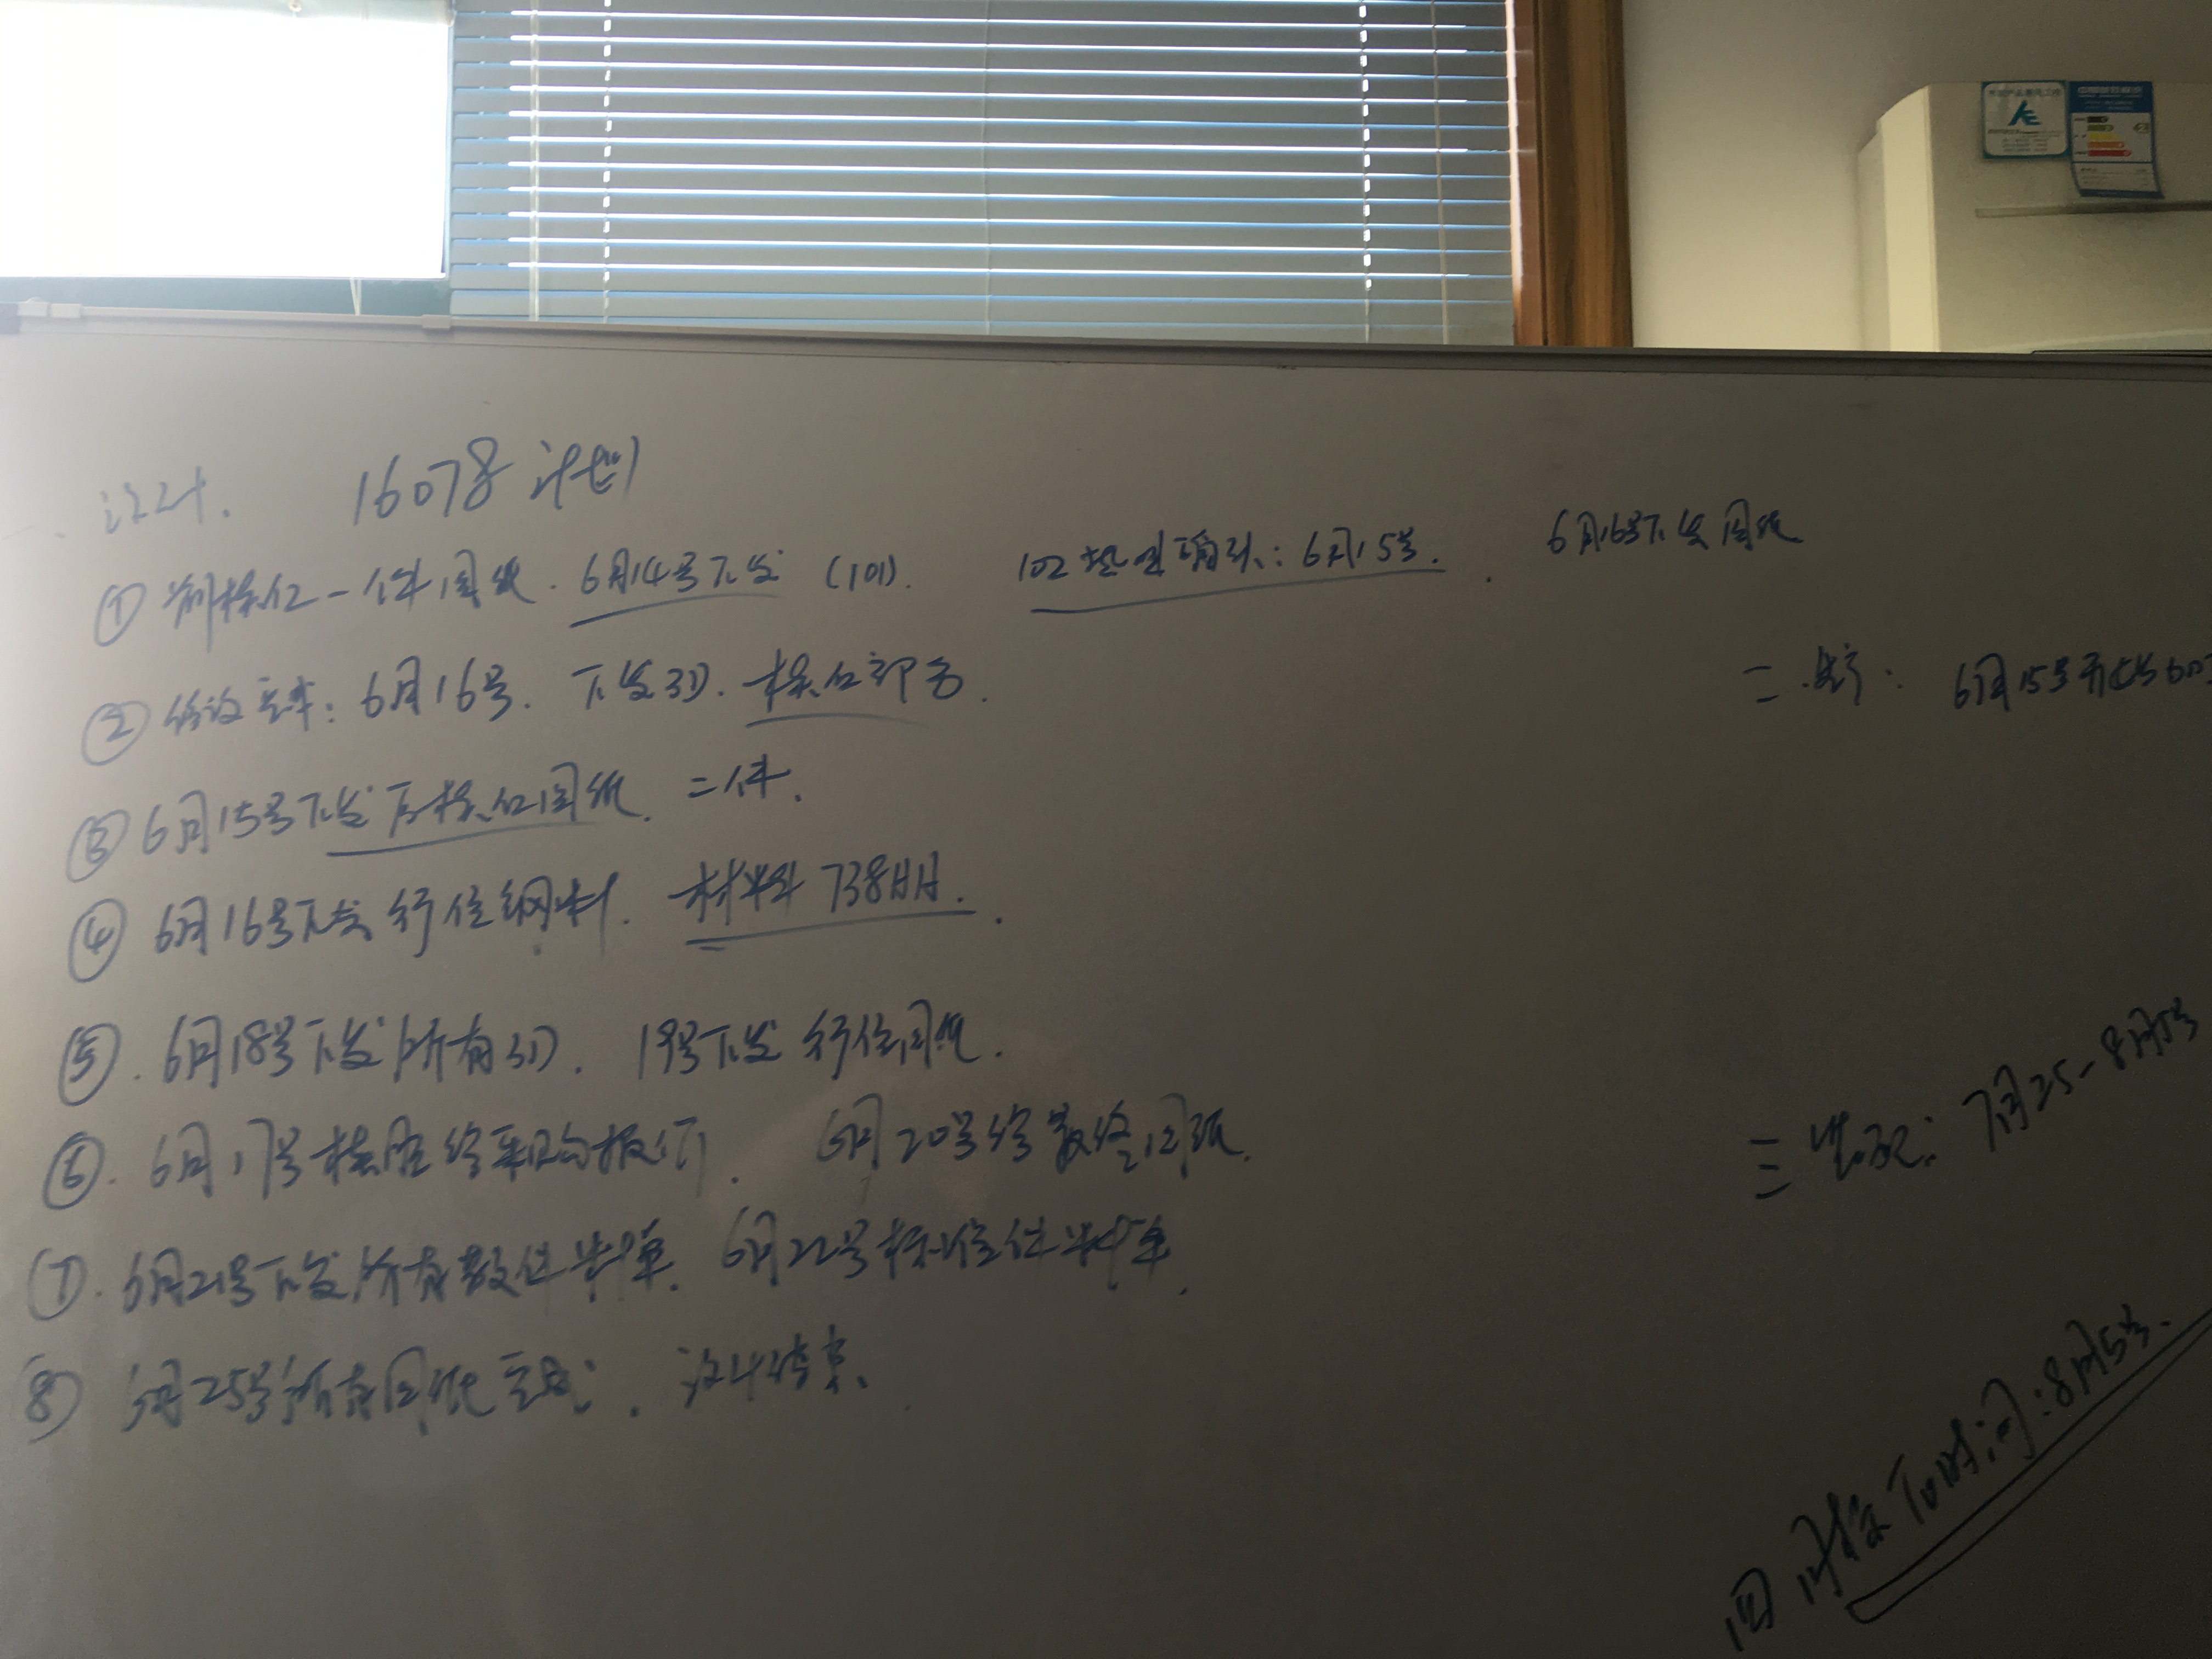 一、设计. 16078计划
① 前模仁一件图纸. 6月14号下发 (101). 102热咀确认: 6月15号. 6月16号下发图纸
② 结构: 6月16号. 下发3D. 模仁部分.
③ 6月15号下发后模仁图纸. 二件.
④ 6月16号下发行位钢料. 材料738HH.
⑤. 6月18号下发所有3D. 19号下发行位图纸.
⑥. 6月17号模胚给采购报价. 6月20号给最终图纸.
⑦. 6月21号下发所有散件料单. 6月22号标准件料单.
⑧ 6月25号所有图纸完成. 设计结束.
二. 生产: 6月15号开始
三 装配: 7月25-8月5号
四 试模T0时间: 8月5号.